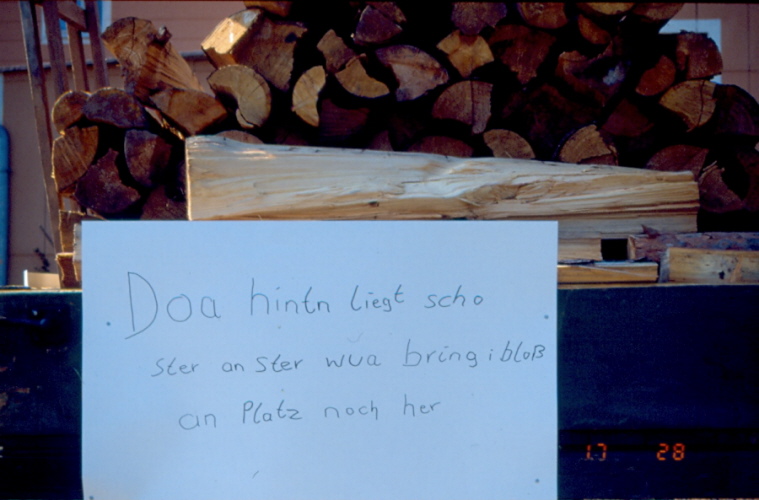 Doa hintn liegt scho
Ster an Ster wua bring i bloß
an Platz noch her
17 28